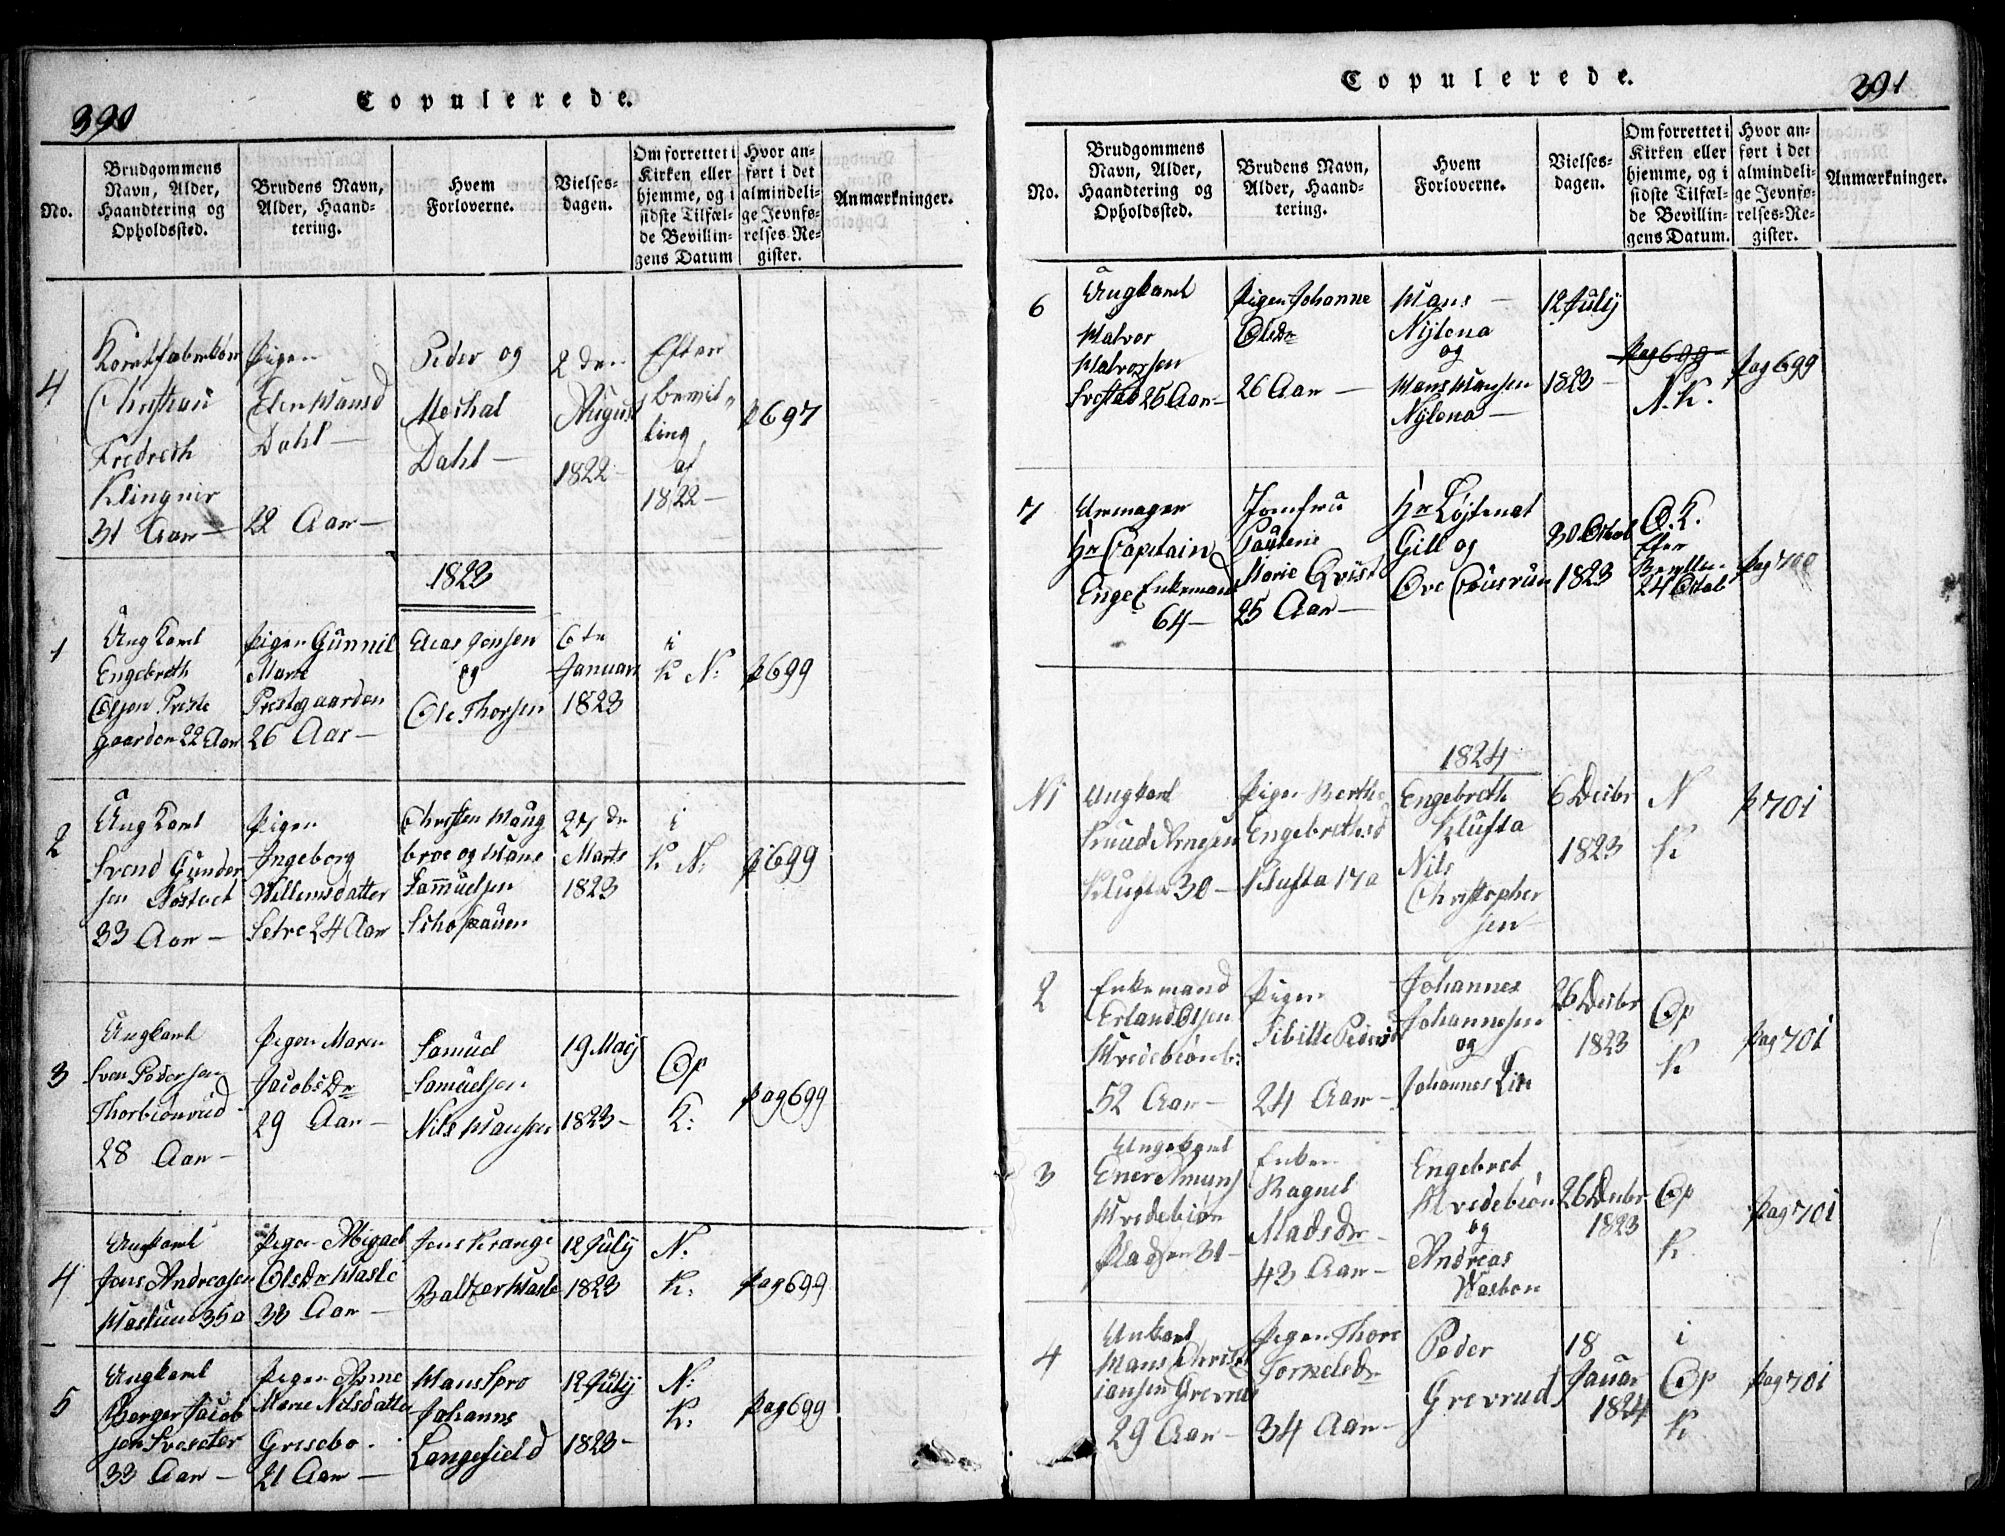 390
Copulerede.
No.
Brudgommens
Navn, Alder,
Haandtering og
Opholdssted.
Brudens Navn,
Alder, Haand-
tering.
Hvem
Forloverne.
Vielses-
dagen.
Om forrettet i
Kirken eller
hjemme, og i
sidste Tilfæl-
de Bevillin-
gens Datum
Hvor an-
ført i det
almindeli-
ge Jevnfø-
relses-Re-
gister.
Anmærkninger.
4
Christian
Fredrech
Klingnir
31 Aar
Pigen
Elen Hansd
Dahl
22 Aar
Peder og
Michal
Dahl
2 den
August
1822
Efter
bevil-
ling
af
1822
p 697
1823
1
Ung Karl
Engebreth
Olsen Preste
gaarden 22 Aar
Pigen Gunnil
Marie
Prestegaarden
26 Aar
Elias Jensen
og
Ole Thorsen
6te
Januari
1823
i
K N:
p 699
2
Ung Karl
Svend Gunder
sen
33 Aar
Pigen
Ingeborg
Willumsdatter
Setre 24 Aar
Christen Haug
broe og Hans
Sammuelsen
27 de
Marts
1823
i
K N:
p 699
3
Ungkarl
Sven Pedersen
Thorbiönrud
28 Aar
Pigen Maren
Jacobs Dr
29 Aar
Samuel
Samuelsen
Nils Hansen
19 Maij
1823
Op
K:
pag 699
4
Ungkarl
Jens Andreasen
Haslum 35 a
Pigen Abigael
Olsdr Hasle
30 Aar
Jens Krange
Baltzer Hasle
12 Julij
1823
N:
K:
pag 699
5
Ungkarl
Borger Jacob
sen
33 Aar
Pigen Anne
Marie Nilsdatter
Gresebo
21 Aar
Hans Spro
Johannes
Langefield
12 Julij
1823
N:
K:
pag 699
391
Copulerede.
No.
Brudgommens
Navn, Alder,
Haandtering og
Opholdssted.
Brudens Navn,
Alder, Haand-
tering.
Hvem
Forloverne.
Vielses-
dagen.
Om forrettet i
Kirken eller
hjemme, og i
sidste Tilfæl-
de Bevillin-
gens Datum.
Hvor an-
ført i det
almindeli-
ge Jevnfø-
relses-Re-
gister.
Anmærkninger.
6
Ungkarl
Halvor
Halvorsen
Svestad 25 Aar
Pigen Johanne
Olsdr
26 Aar
Hans
Nylena
og
Hans Hansen
Nylena
12 Julij
1823
pag 699
N. K.
pag 699
7
Hr Captain
Enge Enkemand
64
Jomfru
Paulene
Marie Qvist
25 Aar
Hr Löjtenat
Gill og
Ove
30 Octob
1823
O. K.
Efter
24 Octob
pag 700
1824
N 1
Ungkarl
Knud Arnesen
Klufta 30
Pigen Berthe
Engebrethsd
Klufta 17 a
Engebreth
Klufta
Nils
Christopher
sen
6 Decbr
1823
N
K
p 701
2
Enkemand
Erland Olsen
Hvedebiön
52 Aar
Pigen
Sibille Pedersd
24 Aar
Johannes
Johannesen
og
Johannes Lie
26 Decbr
1823
Op
K
pag 701
3
Ungekarl
Hvedebiön
Pladsen 31
Enken
Ragnel
Mads dr
43 Aar
Engebret
Hvedebiön
og
Andreas
26 Decbr
1823
Op
K
pag 701
4
Unkarl
Hans Christ
iansen Grevrud
29 Aar
Pigen Thore
34 Aar
Peder
Grevrud
18
Januar
1824
i
Op
K
pag 701